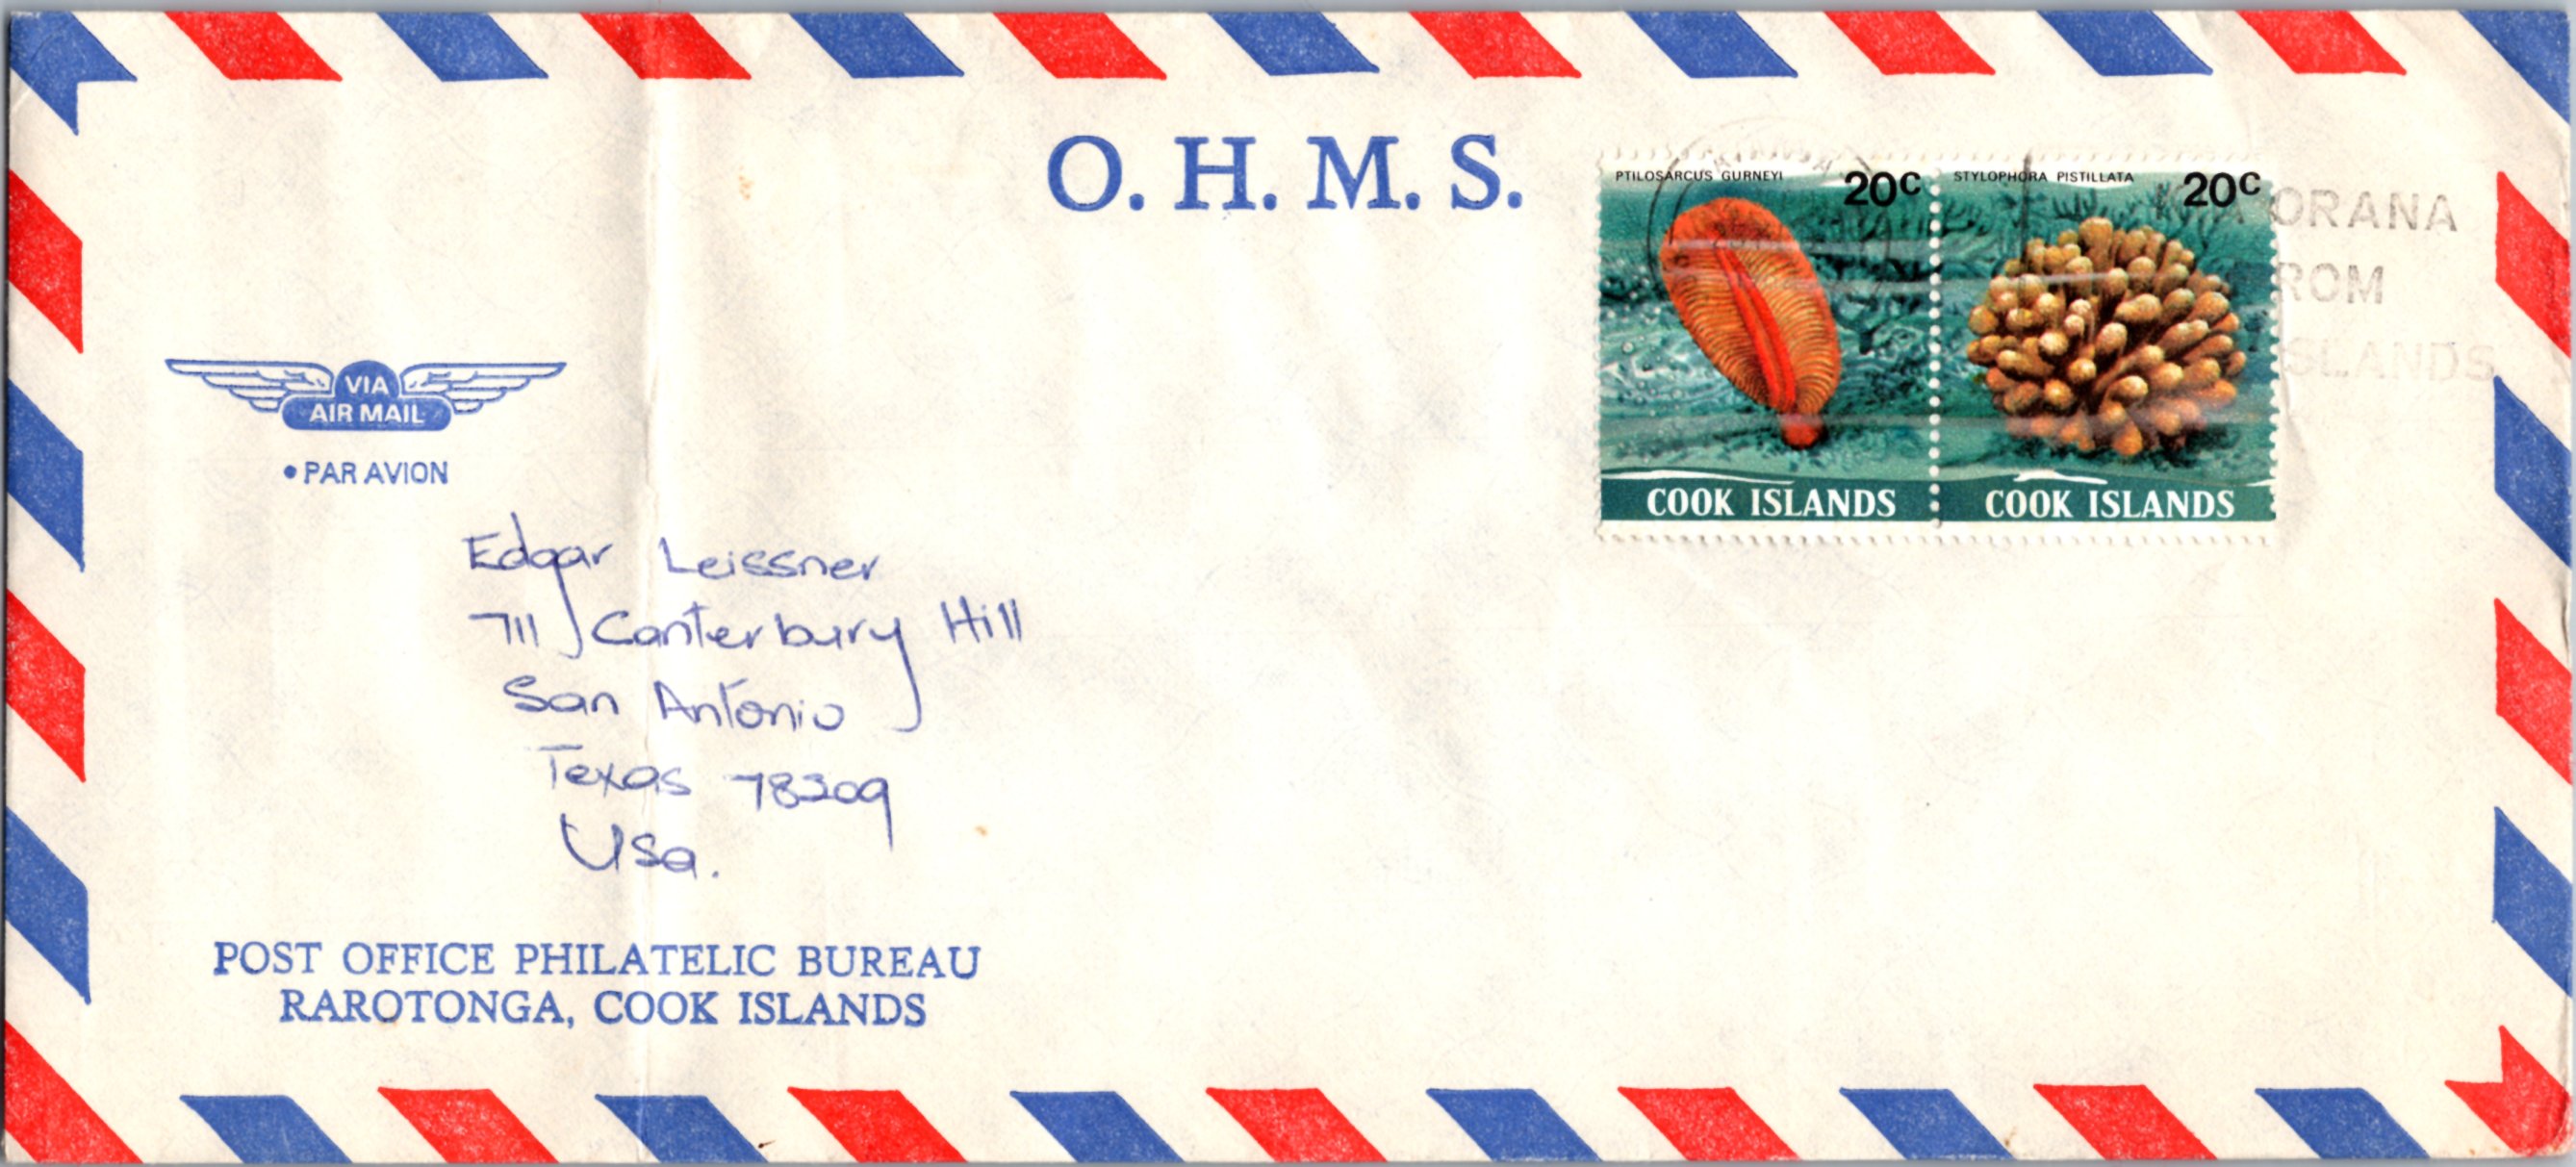 O. H. M. S.
PTILOSARCUS GURNEYI 20c
STYLOPHORA PISTILLATA 20c
ORANA
ROM
SLANDS
COOK ISLANDS
COOK ISLANDS
VIA
AIR MAIL
• PAR AVION
Edgar Leissner
711 Canterbury Hill
San Antonio
Texas 78209
Usa.
POST OFFICE PHILATELIC BUREAU
RAROTONGA, COOK ISLANDS